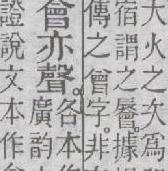 大火之次爲
宿謂之脣據
傳之曾字。非
會亦聲。各本
廣韵
證說文本作